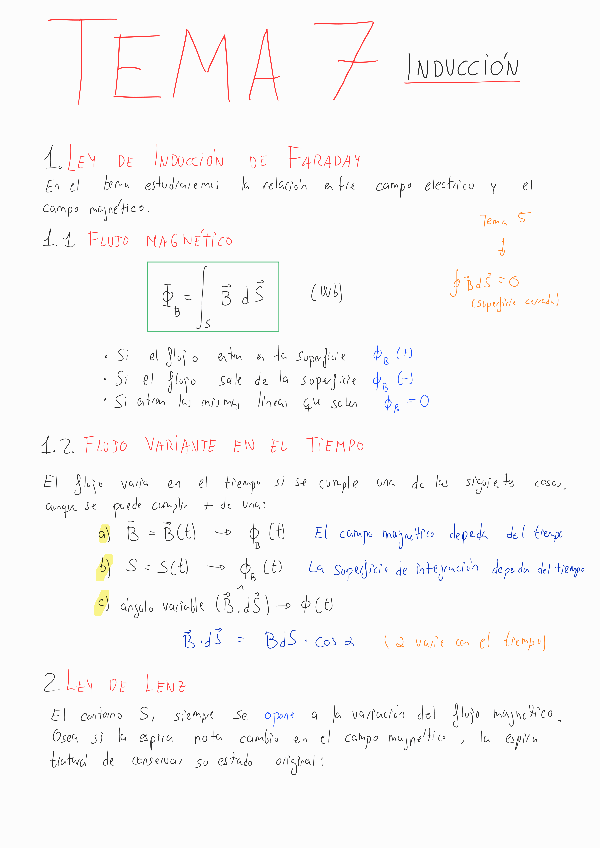 TEMA 7 INDUCCIÓN
1. LEY DE INDUCCIÓN DE FARADAY
En el tema estudiaremos la relación entre campo electrico y el
campo magnético.
1.1 FLUJO MAGNÉTICO
Tema 5
↓
∮ B⃗ dS⃗ = 0
(superficie cerrada)
Φ_B = ∫_S B⃗ dS⃗ (Wb)
• Si el flujo entra en la superficie Φ_B (+)
• Si el flujo sale de la superficie Φ_B (-)
• Si entran las mismas líneas que salen Φ_B = 0
1.2. FLUJO VARIANTE EN EL TIEMPO
El flujo varia en el tiempo si se cumple una de las siguientes cosas,
aunque se puede cumplir + de una:
a) B⃗ = B⃗(t) → Φ_B (t) El campo magnético dependa del tiempo
b) S = S(t) → Φ_B (t) La superficie de integración dependa del tiempo
c) ángulo variable (B⃗, dS⃗) → Φ(t)
B⃗ · dS⃗ = B dS · cos α (α varie con el tiempo)
2. LEY DE LENZ
El contorno S, siempre se opone a la variación del flujo magnético.
Osea si la espira nota cambio en el campo magnético, la espira
tratará de conservar su estado original: